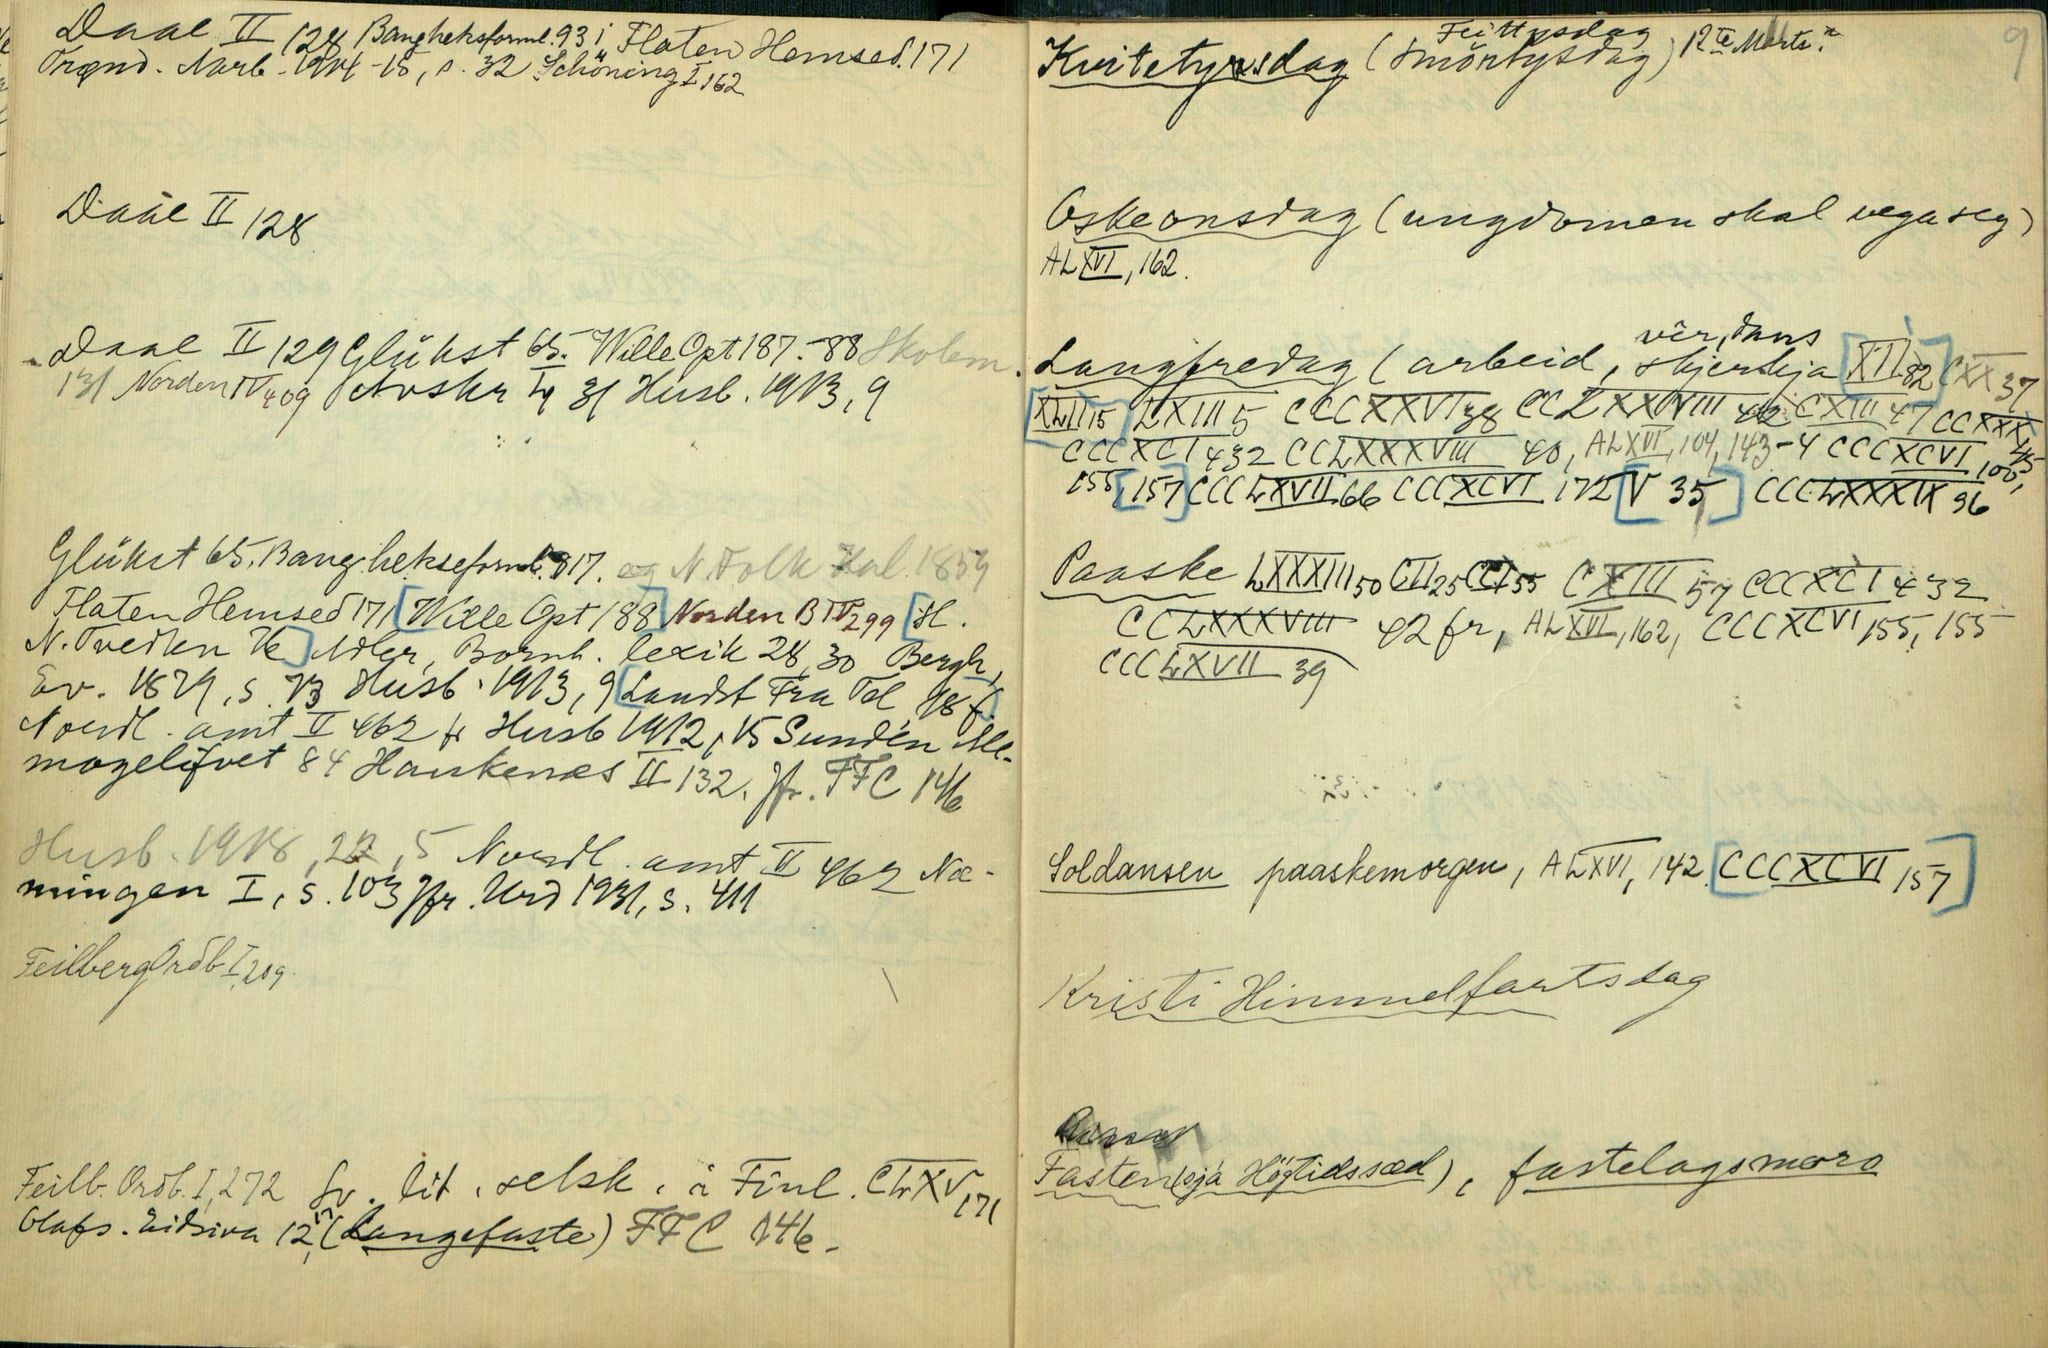 Daae II 128 Bang hekseforml. 931 Flaten Hemsed. 171
Trønd. Aarb. 1914-15, s. 32 Schöning I 162
Daae II 128
Daae II 129 Glükst 65. Wille Opt 187.-88 Skolem.
131 Norden IV 409 Avskr 31 Husb. 1913, 9
Glükst 65. Bang hekseforml. 817. og N. Folk Kal. 1859
Flaten Hemsed 171 [Wille Opt 188] Norden B IV 299 [H.
N. Tvedten 76] Adler, Bornh. lexik 28, 30 Bergh,
Ev. 1879, s. 73 Husb. 1913, 9 [Landst Fra Tel 18 f.]
Nordl. amt II 462 fr Husb 1912, 15 Sundén Alle-
mogelifvet 84 Haukenæs II 132. Jfr. FFC 146
Husb. 1918, 22, 5 Nordl. amt II 462 Næ-
mingen I, s. 103 Jfr. Urd 1931, s. 411
Feilberg Ordb I, 209.
Feilb. Ordb. I, 272 Sv. lit. selsk. i Finl. CLXV, 171
Olafs. Eidsiva 12, 17 (Langefaste) FFC 146.
9
Feittysdag
Kvitetysdag (Smörtysdag) 12te Marts.
Oskeonsdag (ungdomen skal vega seg)
ALXVI, 162.
vêr, dans
Langfredag (arbeid, skjerskja [XII 82] CXX 37
[XLII 15] LXIII 5 CCCXXVI 38 CCLXXXVIII 42 CXIII 47 CCXXX
45
CCCXCI 432 CCLXXXVIII 40, ALXVI, 104, 143-4 CCCXCVI, 100,
155, [157] CCCLXVII 66 CCCXCVI 172 [V 35] CCCLXXXIX 96
Paaske LXXXIII 50 CII 25 CCI 55 CXIII 57 CCCXCI 432
CCLXXXVIII 42 fr, ALXVI, 162, CCCXCVI 155, 155
CCCLXVII 39
Soldansen paaskemorgen, ALXVI, 142. [CCCXCVI 157]
Kristi Himmelfartsdag
Fasten (sjá Högtidssæd), fastelagsmoro